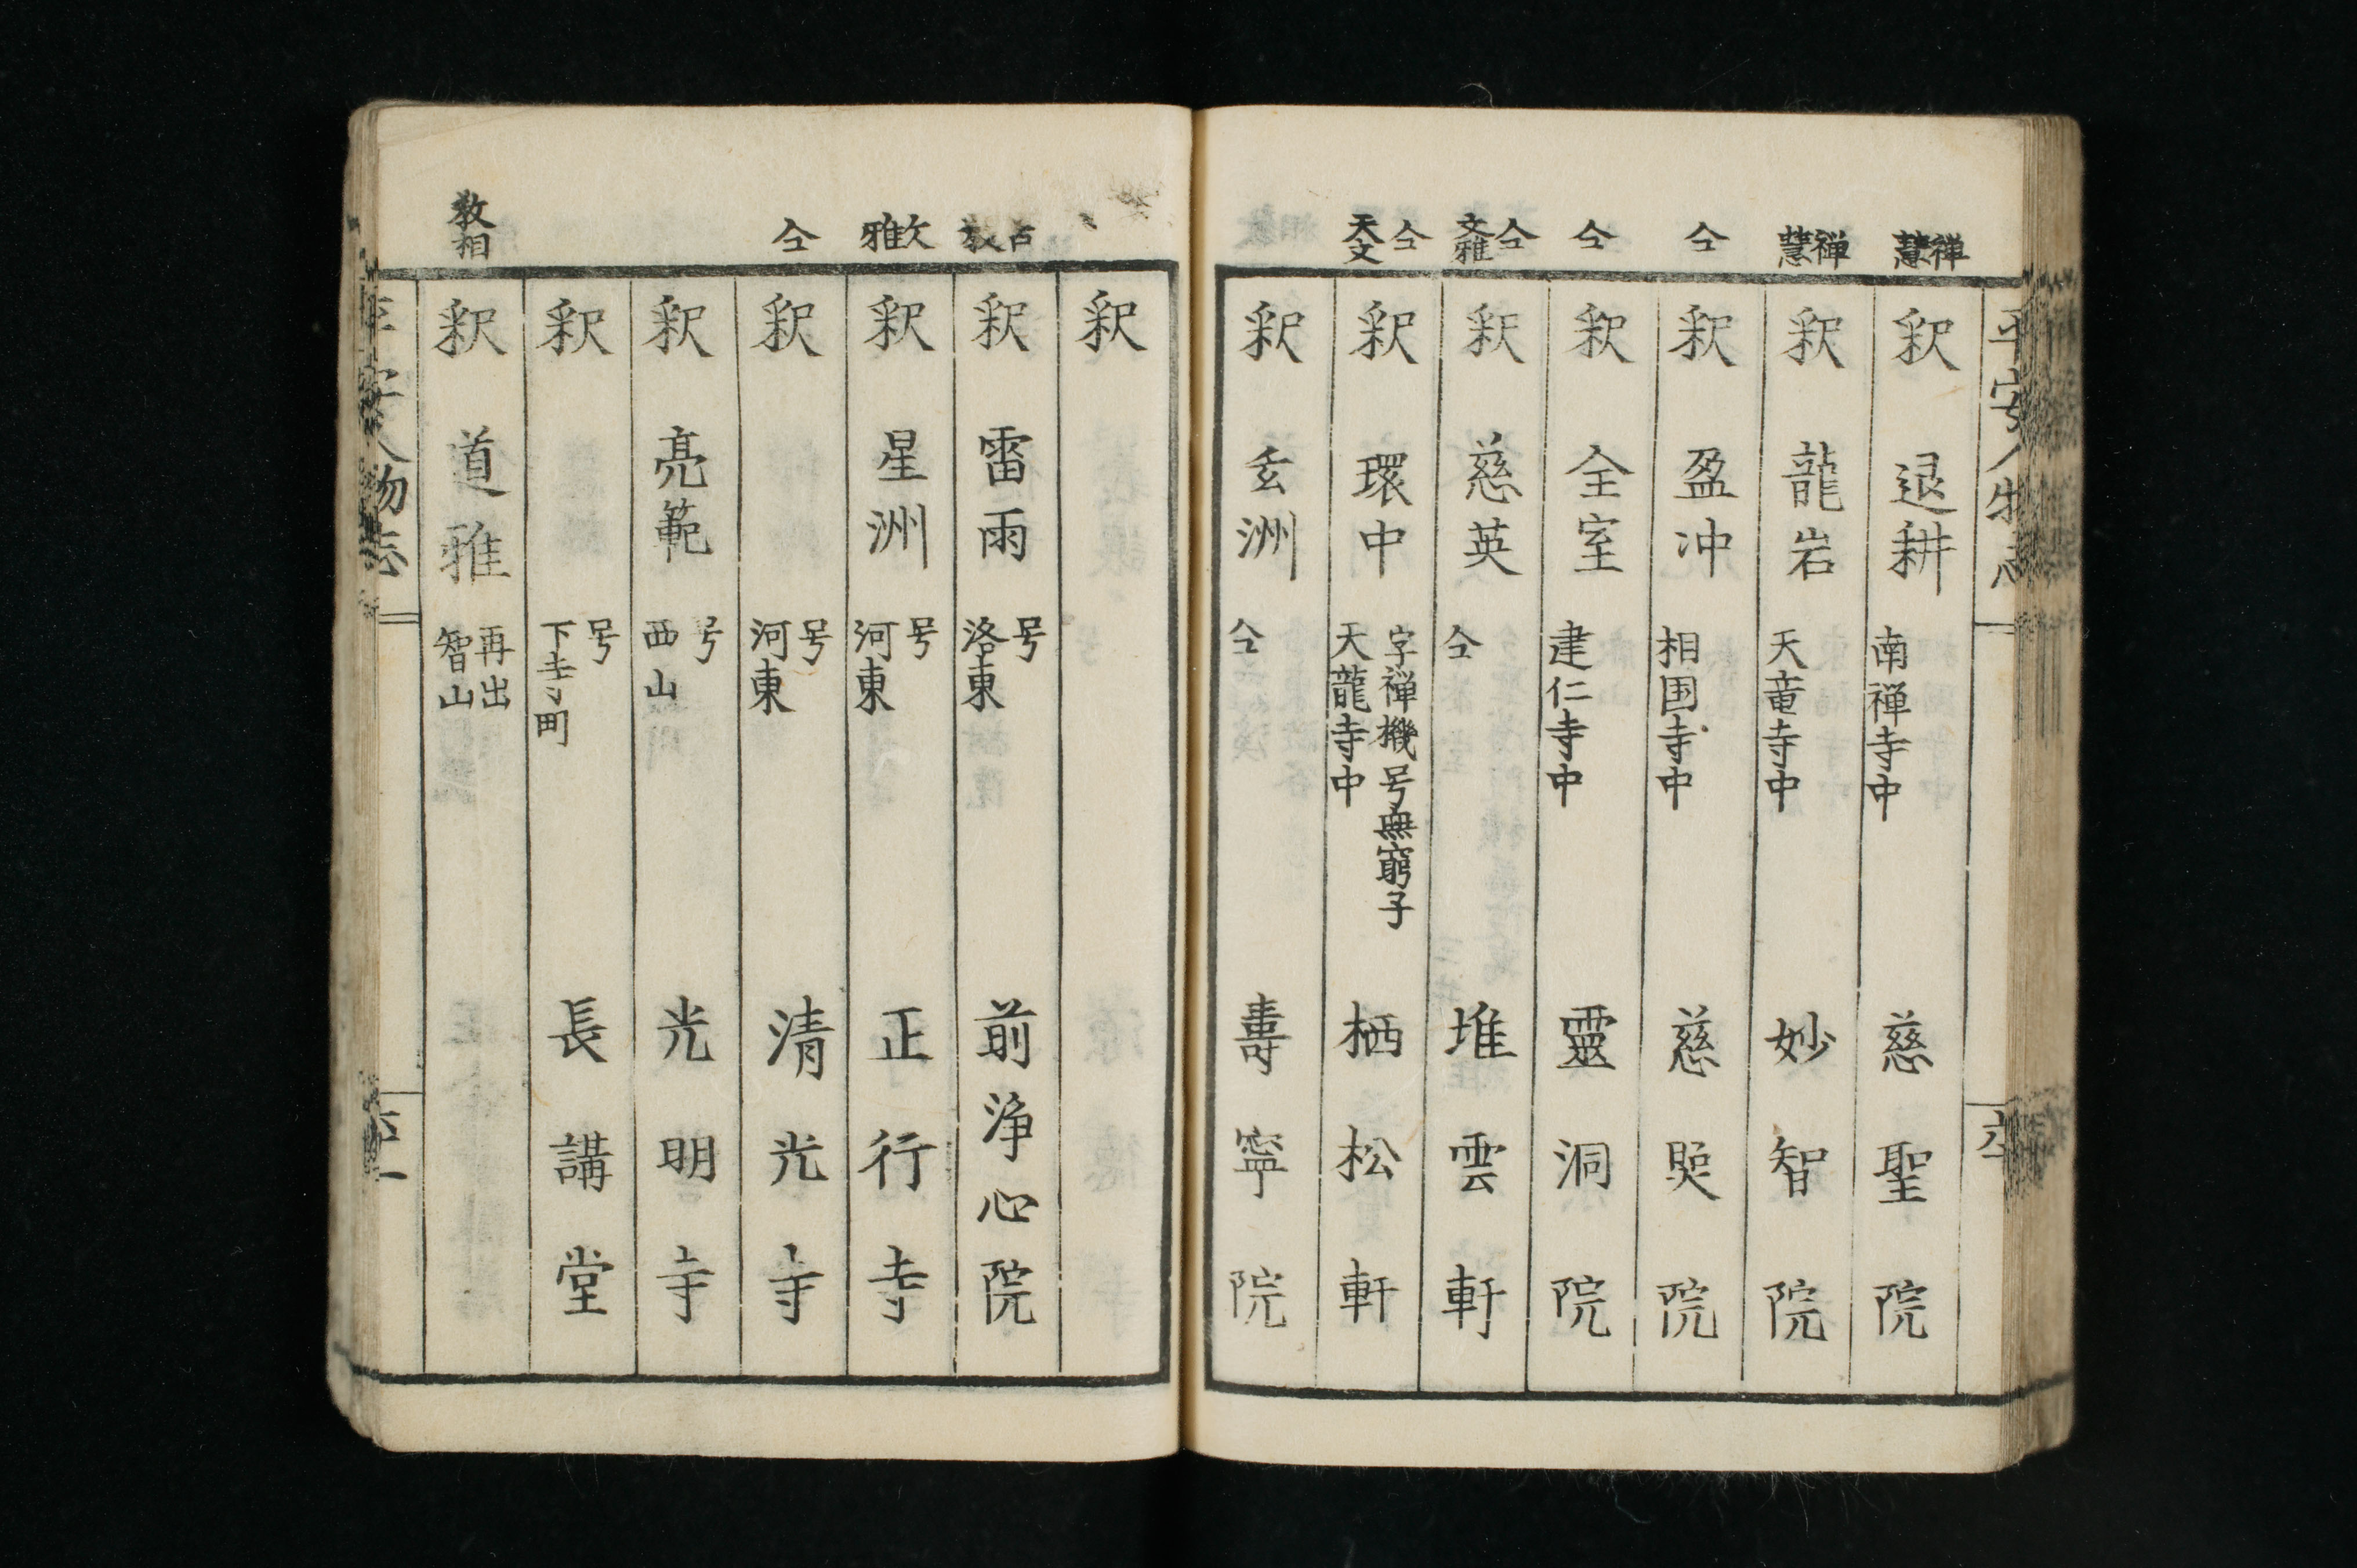 平安人物志
禅慧
釈 退耕 南禅寺中 慈聖院
禅慧
釈 龍岩 天竜寺中 妙智院
仝
釈 盈冲 相国寺中 慈照院
仝
釈 全室 建仁寺中 靈洞院
仝 文雅
釈 慈英 仝 堆雲軒
仝 天文
釈 環中 字禅機号無窮子 天龍寺中 栖松軒
釈 玄洲 仝 壽寧院
釈
釈 雷雨 号 洛東 前浄心院
文雅
釈 星洲 号 河東 正行寺
仝
釈 号 河東 清光寺
釈 亮範 号 西山 光明寺
釈 号 下寺町 長講堂
教相
釈 道雅 再出 智山
平安人物志